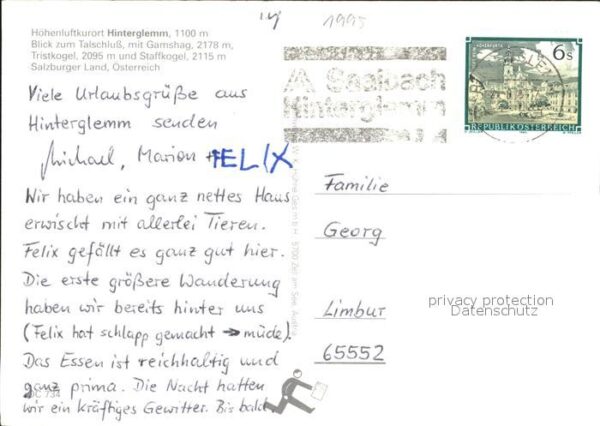 1995
Höhenluftkurort Hinterglemm, 1100 m
Blick zum Talschluß, mit Gamshag, 2178 m,
Tristkogel, 2095 m und Staffkogel, 2115 m
Salzburger Land, Österreich
Viele Urlaubsgrüße aus
Hinterglemm senden
Michael, Marion + FELIX
Wir haben ein ganz nettes Haus
erwischt mit allerlei Tieren.
Felix gefällt es ganz gut hier.
Die erste größere Wanderung
haben wir bereits hinter uns
(Felix hat schlapp gemacht → müde).
Das Essen ist reichhaltig und
ganz prima. Die Nacht hatten
wir ein kräftiges Gewitter. Bis bald.
734
Saalbach
Hinterglemm
6 S
REPUBLIK ÖSTERREICH
Familie
Georg
Limbur
65552
privacy protection
Datenschutz